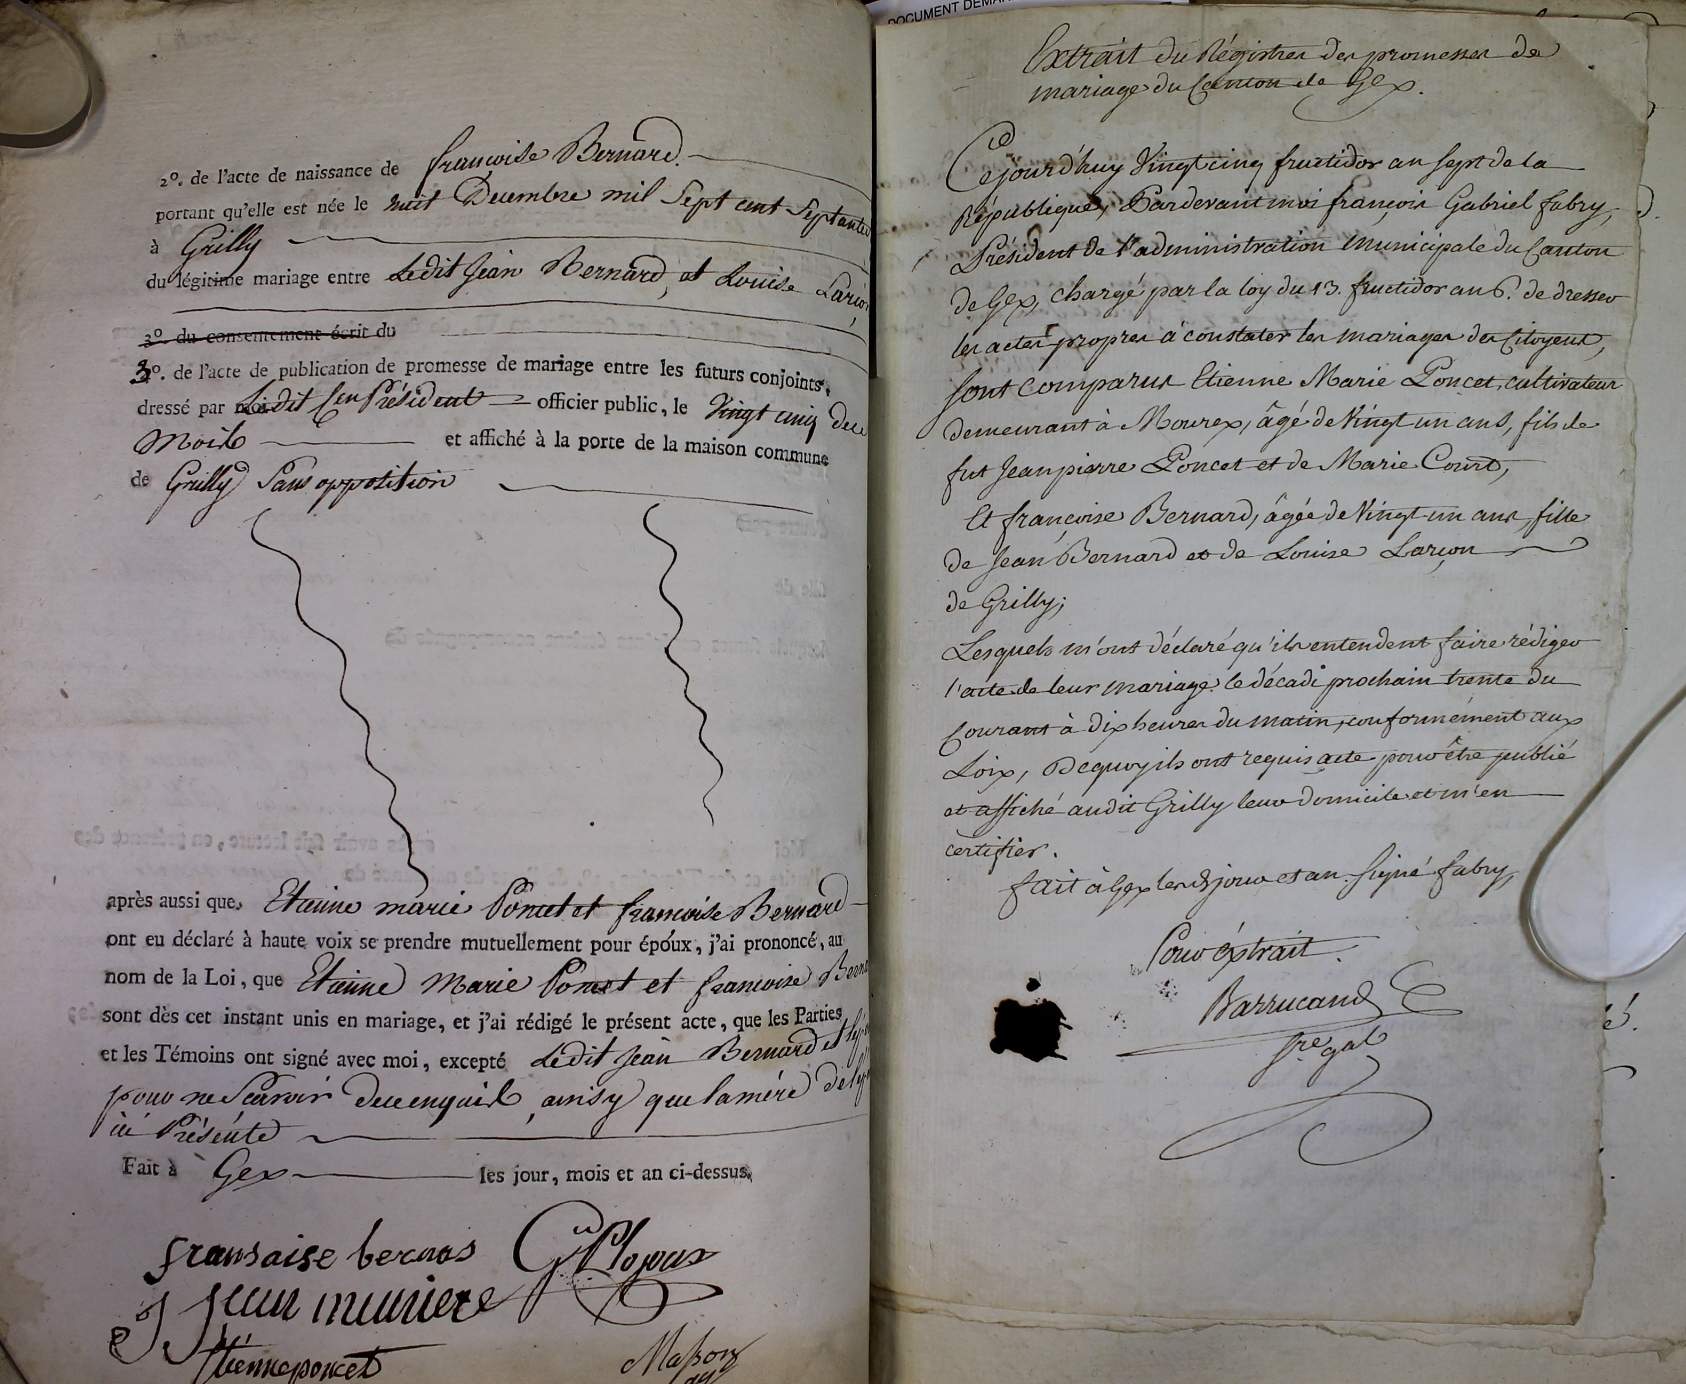 2º. de l'acte de naissance de françoise Bernard.
portant qu'elle est née le huit Decembre mil Sept cent Septante
à Grilly
du légitime mariage entre Ledit Jean Bernard, et Louise Larçon,
3º. du consentement écrit du
3º. de l'acte de publication de promesse de mariage entre les futurs conjoints,
dressé par Ledit Cen Président officier public, le Vingt cinq dece
Moix et affiché à la porte de la maison commune
de Grilly Sans opposition
après aussi que, Etienne marie Poncet et francoise Bernard
ont eu déclaré à haute voix se prendre mutuellement pour époux, j'ai prononcé, au
nom de la Loi, que Etienne Marie Poncet et francoise Berna
sont dès cet instant unis en mariage, et j'ai rédigé le présent acte, que les Parties
et les Témoins ont signé avec moi, excepté Ledit Jean Bernard et
pour ne Scavoir deceenquis, ainsy que la mére
ici Présente
Fait à Gex les jour, mois et an ci-dessus.
fransaise bernas
Jean muniere
Etienne poncet
DOCUMENT
Extrait du Régistres des promesses de
mariage du Canton de Gex.
Cejourd'huy Vingt cinq fructidor an Sept de la
République, Pardevant moi françois Gabriel fabry,
Président de l'administration Municipale du Canton
de Gex, chargé par la loy du 13. fructidor an 6. de dresser
les actes propres à constater les mariages des Citoyens,
Sont comparus Etienne Marie Poncet, cultivateur
demeurant à Mourex, âgé de Vingt un ans, fils de
fut Jean pierre Poncet et de Marie Court,
Et françoise Bernard, âgée de Vingt un ans, fille
de Jean Bernard et de Louise Larçon
de Grilly;
Lesquels m'ont déclaré qu'ils entendent faire rédiger
l'acte de leur mariage le décadi prochain trente du
Courant à dix heures du matin, conformément aux
Loix, Dequoy ils ont requis acte pour être publié
et affiché audit Grilly leur domicile et m'en
certifier.
fait à Gex lesd. jour et an. Signé fabry,
Pour éxtrait.
Barrucand
Sre gal